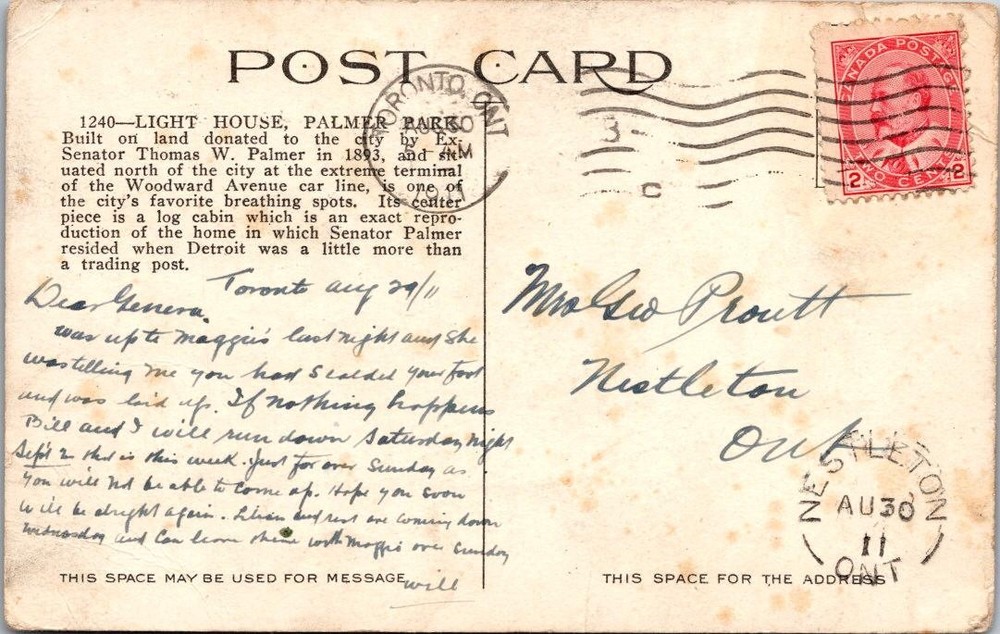 POST CARD
1240—LIGHT HOUSE, PALMER PARK.
Built on land donated to the city by Ex-
Senator Thomas W. Palmer in 1893, and sit-
uated north of the city at the extreme terminal
of the Woodward Avenue car line, is one of
the city's favorite breathing spots. Its center
piece is a log cabin which is an exact repro-
duction of the home in which Senator Palmer
resided when Detroit was a little more than
a trading post.
TORONTO, ONT
AUG 30
5 - AM
1911
3
C
CANADA POSTAGE
2 TWO CENTS 2
Toronto Aug 29/11
Dear Geneva.
was up to Maggie's last night and she
was telling me you had scalded your foot
and was laid up. If nothing happens
Bill and I will run down Saturday night
Sept 2 that is this week. Just for over Sunday as
you will not be able to come up. Hope you soon
will be alright again. and rest are coming down
Wednesday and can leave with Maggie over Sunday
Will
Mrs Geo Proutt
Nestleton
Ont
NESTLETON
AU 30
11
ONT
THIS SPACE MAY BE USED FOR MESSAGE
THIS SPACE FOR THE ADDRESS